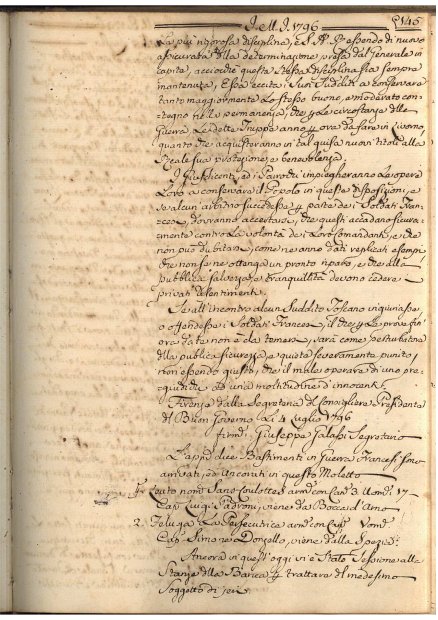 J. M. J. 1796 145
La più rigorosa disciplina, e S. A. R. essendo di nuovo
assicurata della determinazione presa dal Generale in
capite, acciocchè questa stessa disciplina sia sempre
mantenuta, Essa eccita i suoi sudditi a conservare
tanto maggiormente lo stesso buono, e moderato con-
tegno nella permanenza, che per le circostanze della
Guerra le dette Truppe anno per ora da fare in Livorno
quanto che acquisteranno in tal guisa nuovi titoli alla
Reale sua protezione, e benevolenza
I Giusdicenti, ed i Parrochi impiegheranno le opere
Loro a conservare il Popolo in queste disposizioni, e
se alcun arbitrio succedesse per parte dei Soldati Fran-
cesi, dovranno accertare, che questi accadano sicura-
mente contro la volontà dei Loro Comandanti, e che
non può dubitarsi, come ne anno dati replicati esempi
che non se ne ottenga un pronto riparo, e che alla
pubblica salvezza, e tranquillità devono cedere i
privati risentimenti.
Se all'incontro alcun Suddito Toscano ingiuriasse
o offendesse i Soldati Francesi, il che per le prove fin
ora date non è da temersi, sarà come perturbatore
della publica sicurezza, e quiete severamente punito
non essendo giusto, che il male operare di uno pre-
giudichi ad una moltitudine d'innocenti.
Firenze dalla Segreteria del Consigliere Presidente
del Buon Governo Li 4 Luglio 1796
firmo Giuseppe Segretario
due Bastimenti in Guerra Francesi sono
arrivati, ed Ancorati in questo Moletto
1. Leuto nomo Sans-Coulottes armo con Can. 3 Uomi 17
Capn Luigi Padroni, viene da Bocca d'Arno
2. Feluga La Persecutrice armo con Uomi
Capn Simone Donzello, viene dalla Spezie
Ancora in quest'oggi vi è stato Sessione alle
Stanze della Banca per trattare del medesimo
Soggetto di jeri